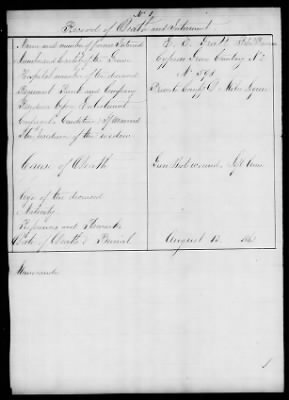 Record of Death and Interment
Name and number of person Interred
Number and locality of the Grave Cypress Grove Cemetery No
Hospital number of the deceased No 598
Regiment Rank and Company Private Comp
Residence before Enlistment
Conjugal Condition if married
the residence of the widow
Cause of Death Gun Shot wound Left Arm
Age of the deceased
Nativity
References and Remarks
Date of Death & Burial August 12